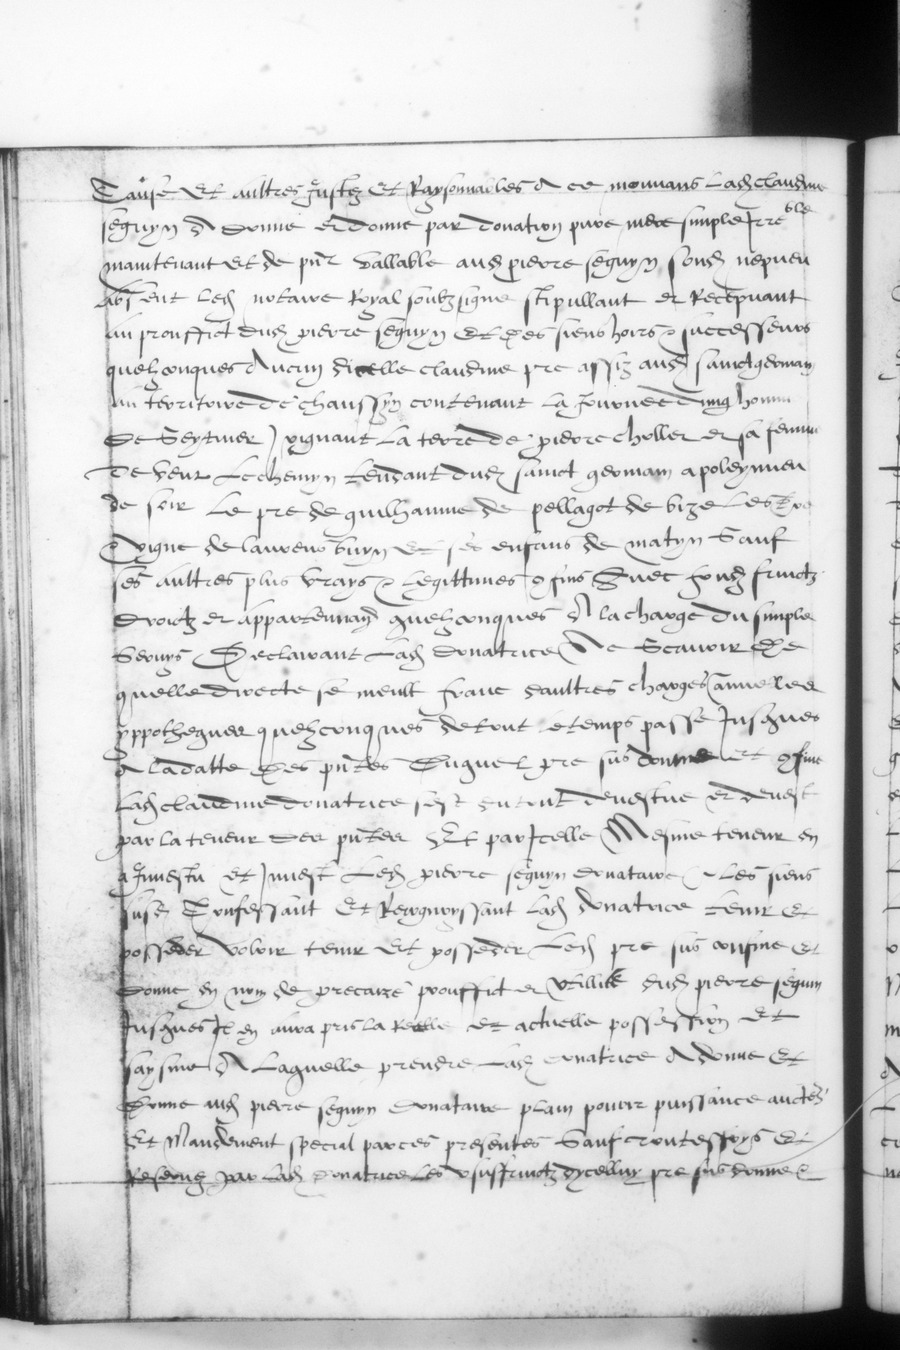 Cause et aultres justes et Raysonnables a ce mouvans lad claudine
seguyn A donne et donne par donation pure mere simple Irreble
maintenant et de pnt vallable aud pierre seguyn sond nepveu
absent led notaire Royal soubzsigne stipullant et Recepvant
au prouffict dud pierre seguyn et des siens hoirs & successeurs
quelzconques Aucun dicelle claudine pre assiz aud sainct germain
au territoire de chaussyn contenant la Journee dung homme
De Seytiver Jvignant la terre de pierre choller et sa femme
De vent Le chemyn tendant dud sainct germain a poleymieu
de soir Le pre de guilhaume de pellagot de bize Les
vigne de laurens buyn et ses enfans de matyn Sauf
ses aultres plus vrays & legittimes 9fins Avec fond fruictz
Droictz et appartenan quelzconques A la charge du simple
Servys Declairant Lad donatrice Ne Scavoir De
quelle directe se meult franc daultres charges annuelles
yppotheques quelzconques de tout le temps passe Jusques
A la datte Des pntes Duquel pre sus donne et 9fine
Lad claudine donatrice sest du tout devestue et devest
par la teneur des pntes Et par Icelle Mesme teneur en
a Investu et Invest Led pierre seguyn donataire & les siens
susd Confessant et Recognoyssant lad donatrice tenir et
posseder voloir tenir et posseder Led pre sus confine et
Donne en nom de precaire prouffict et utillite dud pierre seguyn
Jusques Il en aura pris la Reelle et actuelle possession et
saysine A Laquelle prendre Lad donatrice A donne et
Donne aud pierre seguyn donataire plain povoir puissance aucte
Et Mandement special par ces presentes Sauf toutesfoys et
Reserve par lad donatrice Les usuffruictz dycelluy pre sus donne &